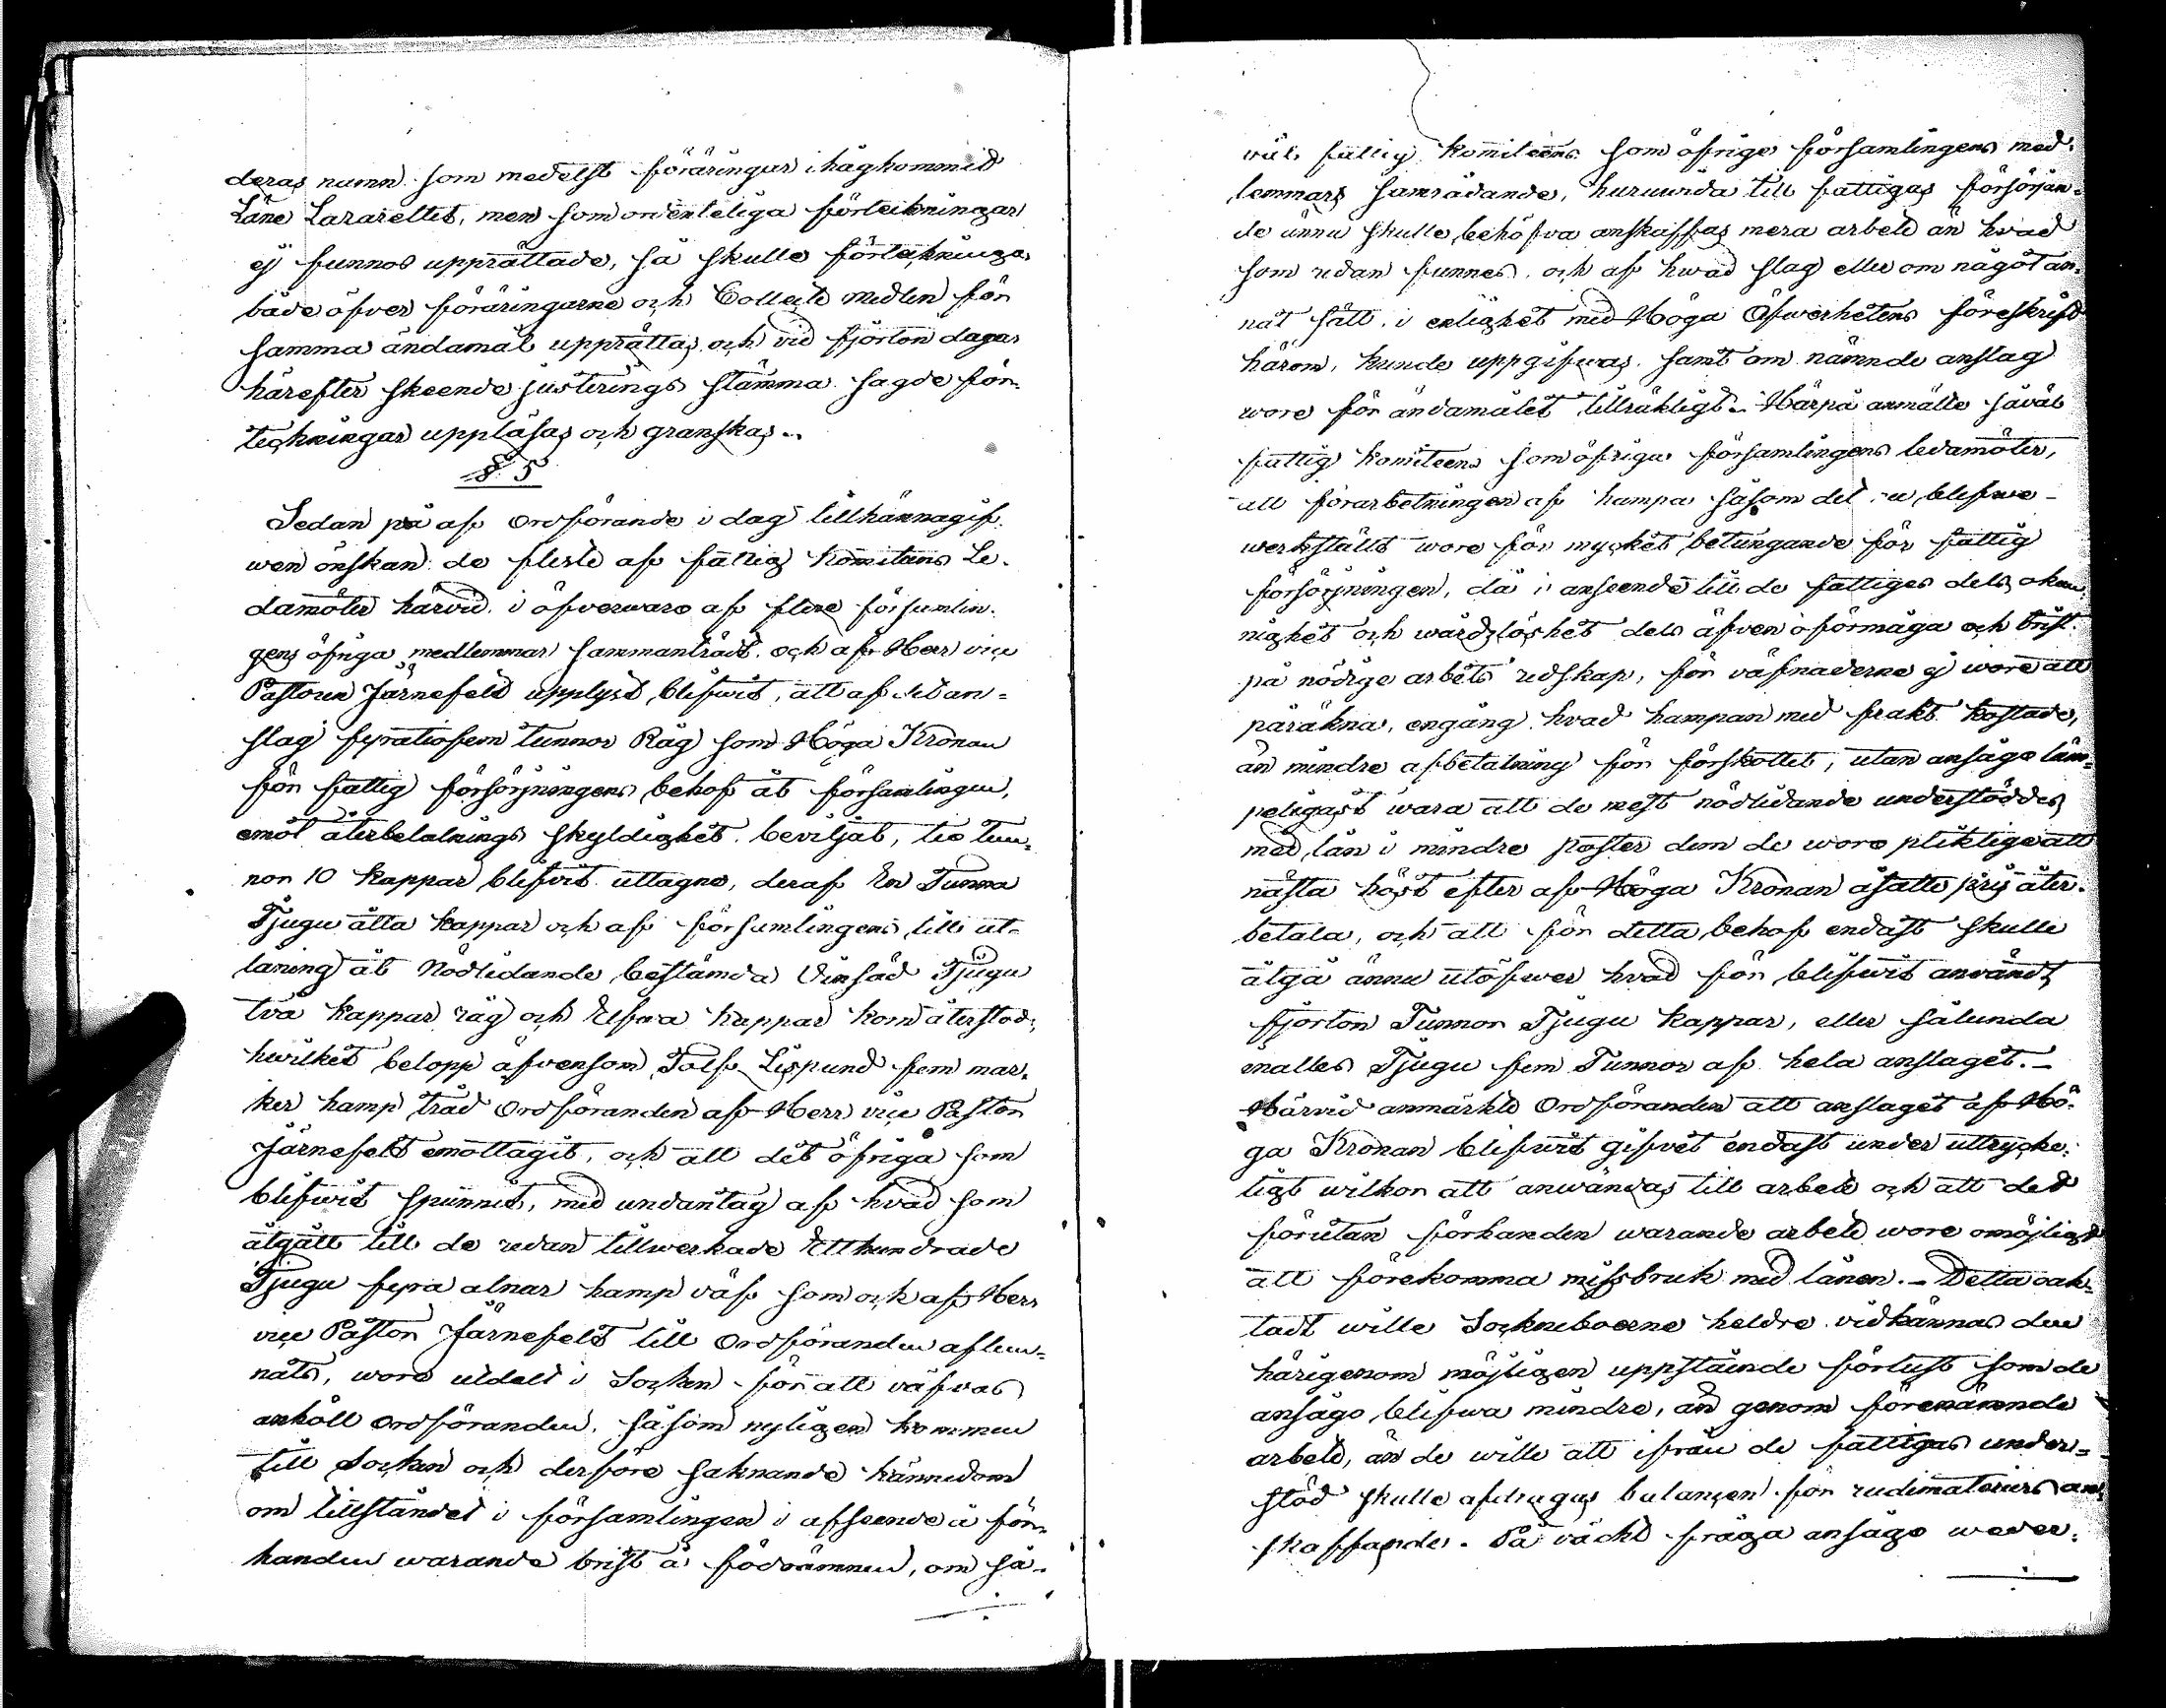 deras namn som medelst föräringar ihågkommit
Läne Lazarettet, men som ordenteliga förteikningar
ej funnos upprättade, så skulle förteckninga
både öfver föräringarne och Collecte medlen för
samma ändamål upprättas och vid fjorton dagar
härefter skeende justerings stämma sagde för-
teckningar uppläsas och granskas..
§. 5
Sedan på af Ordförande i dag tillkännagif-
wen önskan de fleste af fattig Komiteens Le-
damöter härvid, i öfverwaro af flere församlin-
gens öfriga medlemmar sammanträdt och af Herr vice
Pastorn Järnefelt upplyst blifwit, att af det an-
slag fyratiofem tunnor Råg som Höga Kronan
för fattig försörjningens behof åt församlingen,
emot återbetalnings skyldighet beviljat, tio tun-
nor 10 kappar blifvit uttagne, deraf En Tunna
Tjugu åtta kappar och af församlingens till ut-
låning åt Nödlidande bestämda Vinsäd Tjugu
två kappar råg och Elfva kappar korn återstod,
hwilket belopp äfvensom Tolf Lispund fem mar-
ker hamp tråd Ordföranden af Herr vice Pastor
Järnefelt emottagit, och att det öfriga som
blifwit spunnit, med undantag af hvad som
åtgått till de redan tillwerkade Etthundrade
Tjugu fyra alnar hamp väf som och af Herr
vice Pastor Järnefelt till Ordföranden aflem-
nats, wore utdelt i Socken för att väfvas
anhöll Ordföranden, såsom nyligen kommen
till Socken och derföre saknande kännedom
om tillståndet i församlingen i afseende å för-
handen warande brist å födoämnen, om så-
väl fattig Komiteens som öfrige församlingens med-
lemmars samrådande, huruvida till fattigas försörjan-
de ännu skulle behöfva anskaffas mera arbete än hvad
som redan funnes, och af hwad slag eller om något an-
nat sätt i enlighet med Höga Öfwerhetens föreskrift
härom, kunde uppgifwas, samt om nämnde anslag
wore för ändamålet tillräkligt. Härpå anmälte såväl
fattig Komiteens som öfriga församlingens ledamöter,
att förarbetningen af hampa såsom det nu blifwe-
werkstäldt wore för mycket betungande för fattig
försörjningen, då i anseende till de fattiges dels okun-
nighet och wårdslöshet dels äfven oförmåga och brist
på nödige arbets redskap, för väfnaderne ej wore att
påräkna, engång hvad hampan med frakt kostade,
än mindre afbetalning för förskottet, utan ansågo läm-
peligast wara att de mest nödlidande understöddes
med lån i mindre poster dem de wore pliktige att
nästa höst efter af Höga Kronan åsatte pris åter-
betala, och att för detta behof endast skulle
åtgå ännu utöfwer hvad för blifwit användt
fjorton Tunnor Tjugu kappar, eller sålunda
inalles Tjugu fem Tunnor af hela anslaget.-
Härvid anmärkte Ordföranden att anslaget af Hö-
ga Kronan blifwit gifvet endast under uttrycke-
ligt wilkor att anwändas till arbete och att det
förutan förhanden warande arbete wore omöjligt
att förekomma missbruk med lånen.- Detta oak-
tadt wille Sockneboerne heldre vidkännas den
härigenom möjligen uppstående förlust som de
ansågo blifwa mindre, än genom förenämnde
arbete, än de wille att ifrån de fattigas under-
stöd skulle afdragas balancen för rudimateriers an-
skaffande. På väckt fråga ansågo weder-